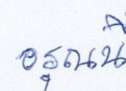 อรุณนี